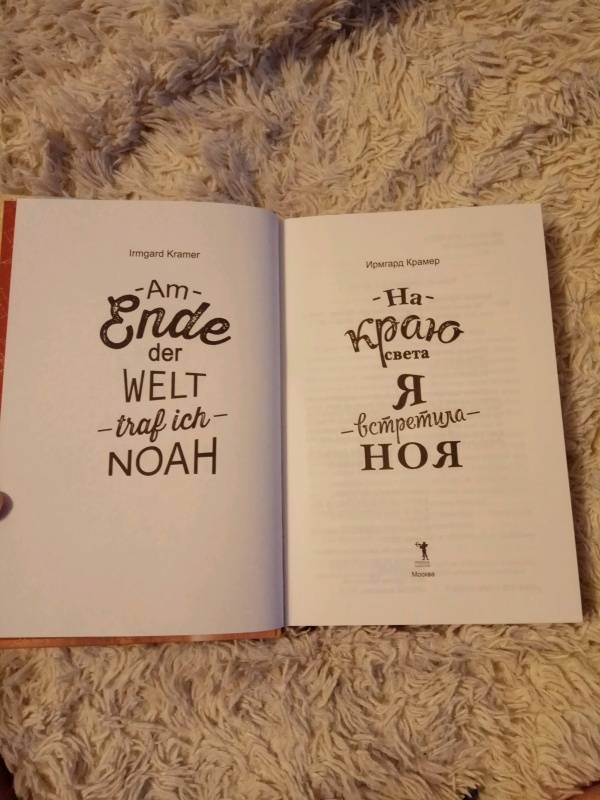 Irmgard Kramer
-Am-
Ende
der
WELT
-traf ich-
NOAH
Ирмгард Крамер
-На-
краю
света
Я
-встретила-
НОЯ
Москва